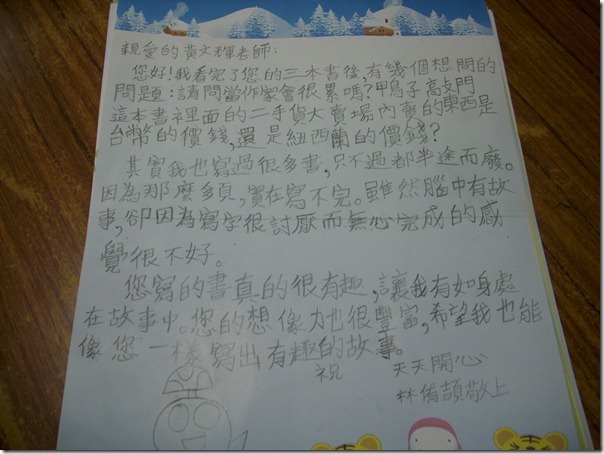 親愛的黃文輝老師:
您好!我看完了您的三本書後,有幾個想問的
問題:請問當作家會很累嗎?鴨子高敏門
這本書裡面的二手貨大賣場內賣的東西是
台幣的價錢,還是紐西蘭的價錢?
其實我也寫過很多書,只不過都半途而廢。
因為那麼多頁,實在寫不完。雖然腦中有故
事,卻因為寫字很討厭而無心完成的感
覺很不好。
您寫的書真的很有趣,讓我有如身處
在故事中。您的想像力也很豐富,希望我也能
像您一樣寫出有趣的故事。
祝
天天開心
林侑頡敬上